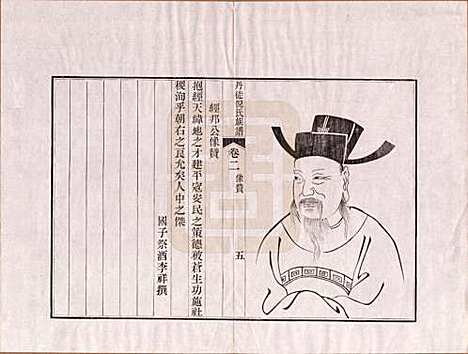 丹徒倪氏族譜
卷二
像贊
五
經邦公像贊
抱經天緯地之才建平寇安民之策德被蒼生功施社
稷洵乎朝右之良允矣人中之傑
國子祭酒李祥撰